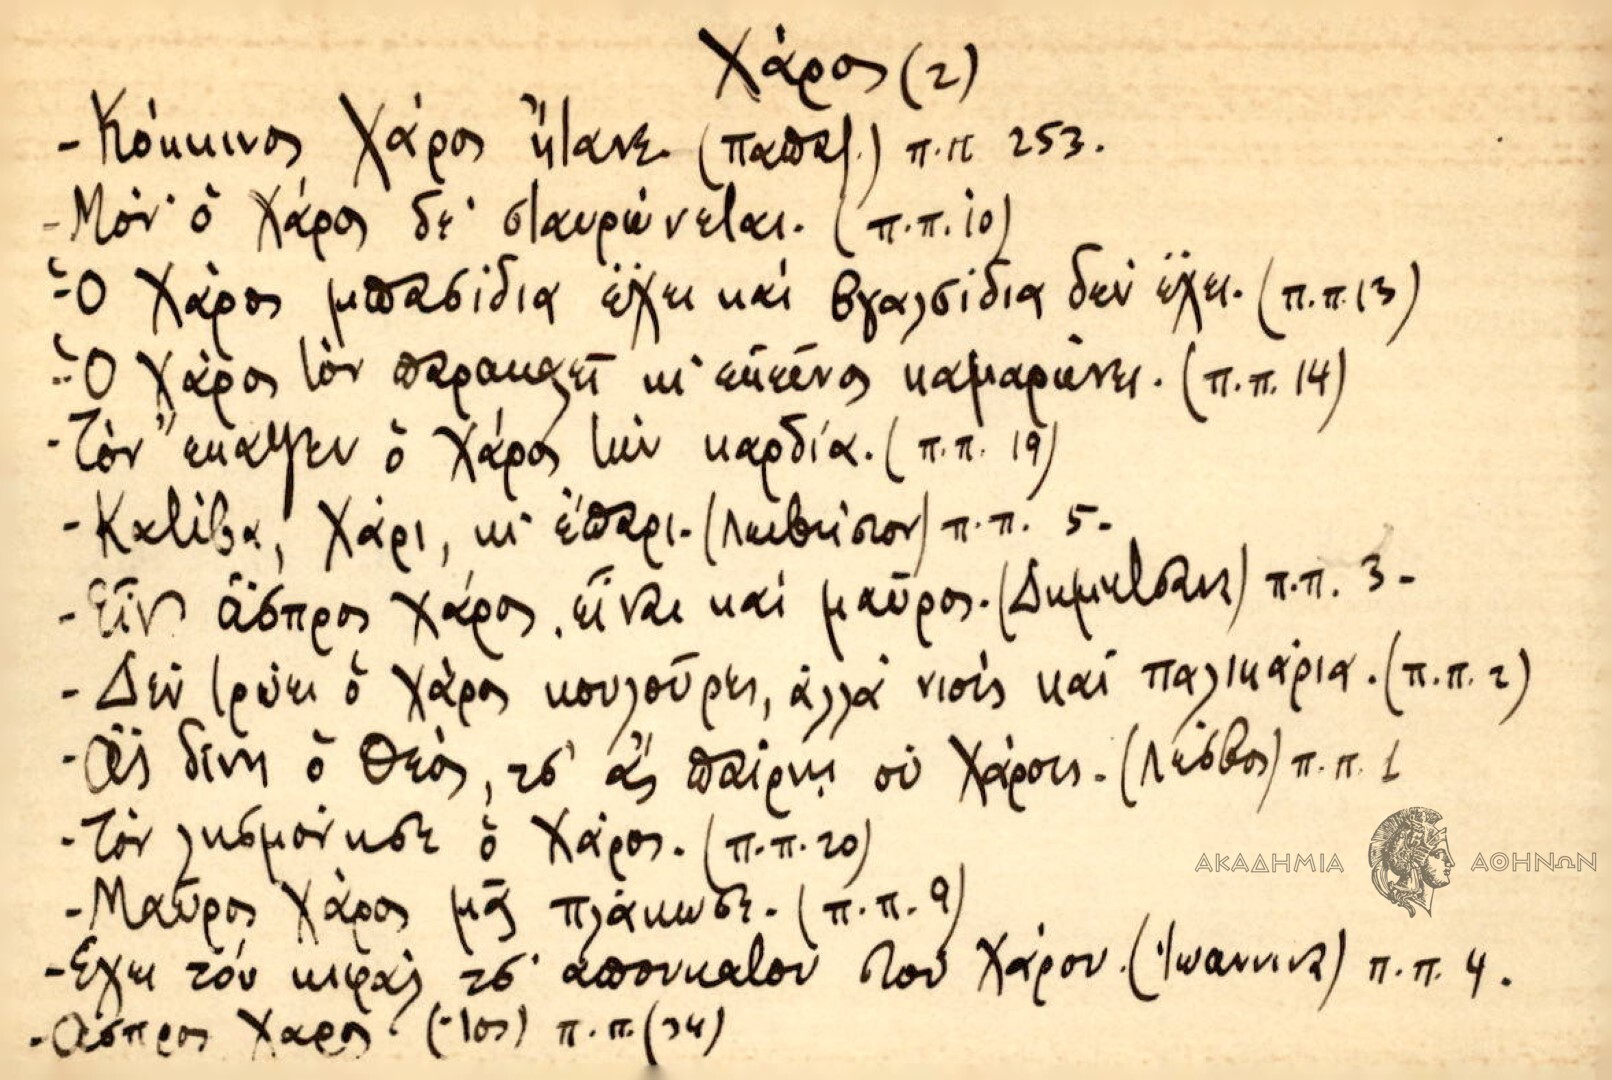 Χάρος (2)
- Κόκκινος Χάρος ἤτανε. (Παπαζ.) π.π 253.
- Μόν' ὁ Χάρος δε' σταυρώνεται. (π.π. 10)
- Ὁ Χάρος μπασίδια ἔχει καί βγαλσίδια δέν ἔχει. (π.π. 13)
- Ὁ Χάρος τόν παρακαλεῖ κι' ἐκεῖνος καμαρώνει. (π.π. 14)
- Τόν ἔκαψεν ὁ Χάρος τήν καρδία. (π.π. 19)
- Κατίβα, Χάρι, κι' ἔπαρι. (Λιβίσιον) π.π. 5-
- Εἶν' ἄσπρος Χάρος, εἶναι καί μαῦρος. (Δημητσάνα) π.π. 3-
- Δέν τρώει ὁ Χάρος κουλοῦρες, ἀλλά νιούς καί παλικάρια. (π.π. 2)
- Ἄς δίνη ὁ Θεός, τσ' ἄς παίρνη οὑ Χάρους. (Λέσβος) π.π. 1
- Τόν λησμόνησε ὁ Χάρος. (π.π. 20)
- Μαῦρος Χάρος μᾶς πλάκωσε. (π.π. 9)
- Ἔχει τόν κιφάλ' τσ' ἀπουκάτου στοῦ Χάρου. (Ἰωάννινα) π.π. 4.
- Ἄσπρος Χάρος. π.π. (34)
ΑΚΑΔΗΜΙΑ ΑΘΗΝΩΝ